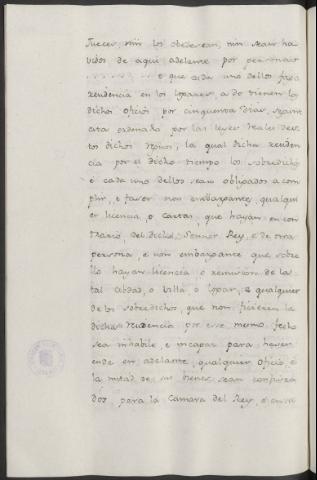 Jueces, nin los obedescan, nin sean ha-
bidos de aqui adelante por personas
. . . . . . . . . e que cada uno dellos faga
rendencia en los logares, a do tienen los
dichos oficios por cinquenta dias, segun
esta ordenado por las leyes reales des-
tos dichos Regnos; la qual dicha renden-
cia por el dicho tiempo los sobredichos
é cada uno dellos sean obligados a com-
plir, e facer non embargantes qualqui-
er licencia, o cartas, que hayan en con-
trario, del dicho Sennor Rey, e de otra
persona, e non embargante que sobre
ello hayan licencia o remision de la
tal Cibdad, o billa o logar, e qualquier
de los sobredichos, que non ficieren la
dicha rendencia por ese mesmo fecho
sea inhabile e incapaz para haver
ende en adelante qualquier oficio, é
la mitad de sus bienes sean confisca-
dos para la Camara del Rey, é en su